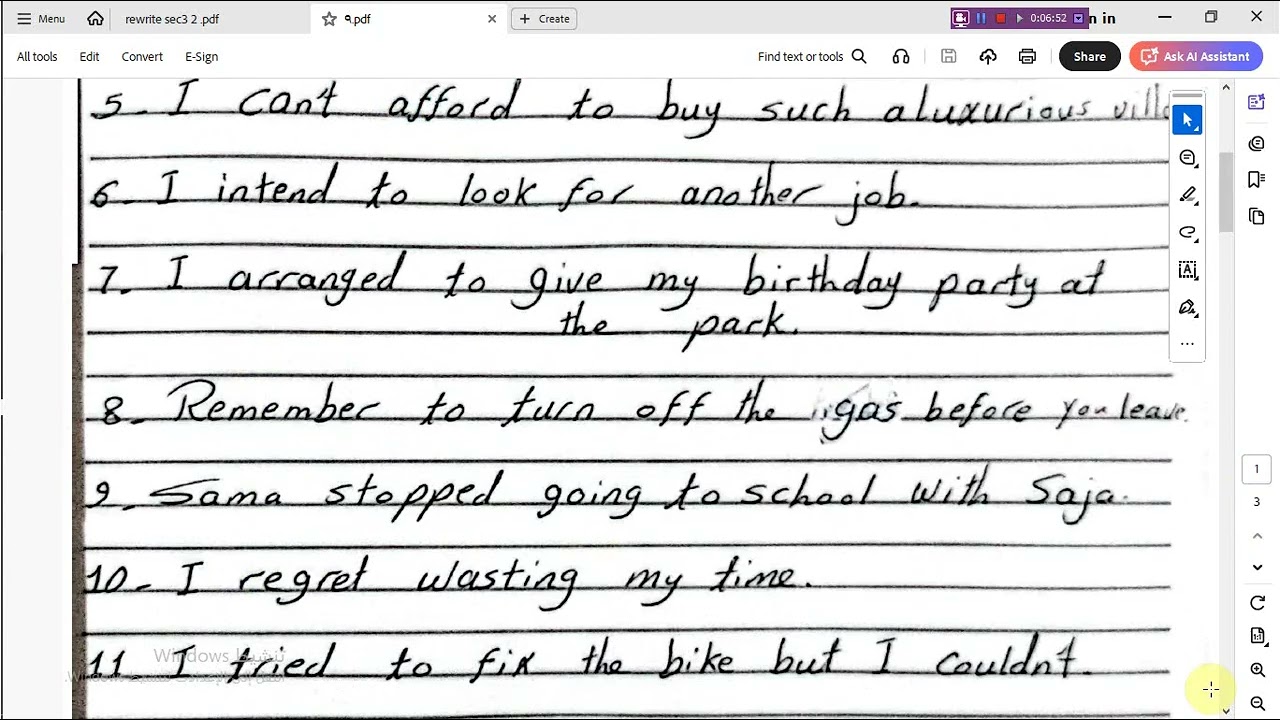 Menu rewrite sec3 2 .pdf ٩.pdf Create 0:06:52 n in
All tools Edit Convert E-Sign Find text or tools Share Ask AI Assistant
5. I can't afford to buy such a luxurious villa
6. I intend to look for another job.
7. I arranged to give my birthday party at
the park.
8. Remember to turn off the gas before you leave.
9. Sama stopped going to school with Saja.
10- I regret wasting my time.
11. I tried to fix the bike but I couldn't.
تنشيط Windows
1
3